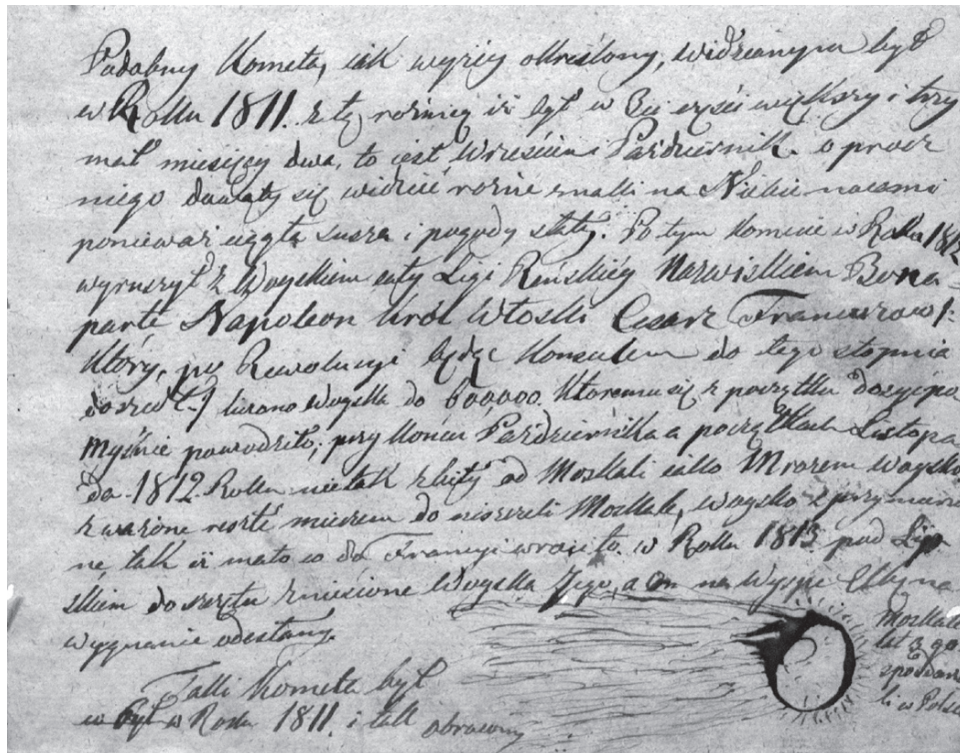 Podobny Kometa, iak wyżey okréslony, widzianym był
w Roku 1811. z tą rożnicą iż był w części większy i trzy
mał miesięcy dwa, to iest Wrzesień i Pazdziernik. oprócz
niego dawały się widzieć rożne znaki na Niebie nocami
ponieważ ciągła susza i pogody stałe. Po tym komecie w Roku 1812
wyruszył z Woyskiem całey Ligi Reńskiéy Nazwiskiem Bona-
parte Napoleon król Włoski Cesarz Francuzow!
który, po Rewolucyi będąc Konsulem do tego stopnia
doszedł.) liczono Woyska do 600,000. któremu się z początku dosyć po
myślnie powodziło; przy końcu Pazdziernika a początkach Listopa
da 1812 Roku nietak zbity od Moskali iako Mrozem woysko
zważone resztę mieczem do niszczeli Moskale, woysko z przymierzo
ne tak iż mało co do Francyi wróciło. w Roku 1813 pod Lip
skiem do szczętu zniesione Woyska Jego, a on na Wyspę Elbę na
wygnanie odesłany.
Moskale
lat 3 go
spodarowa
li w Polsce
Taki kometa był
w był w Roku 1811. i tak obrócony